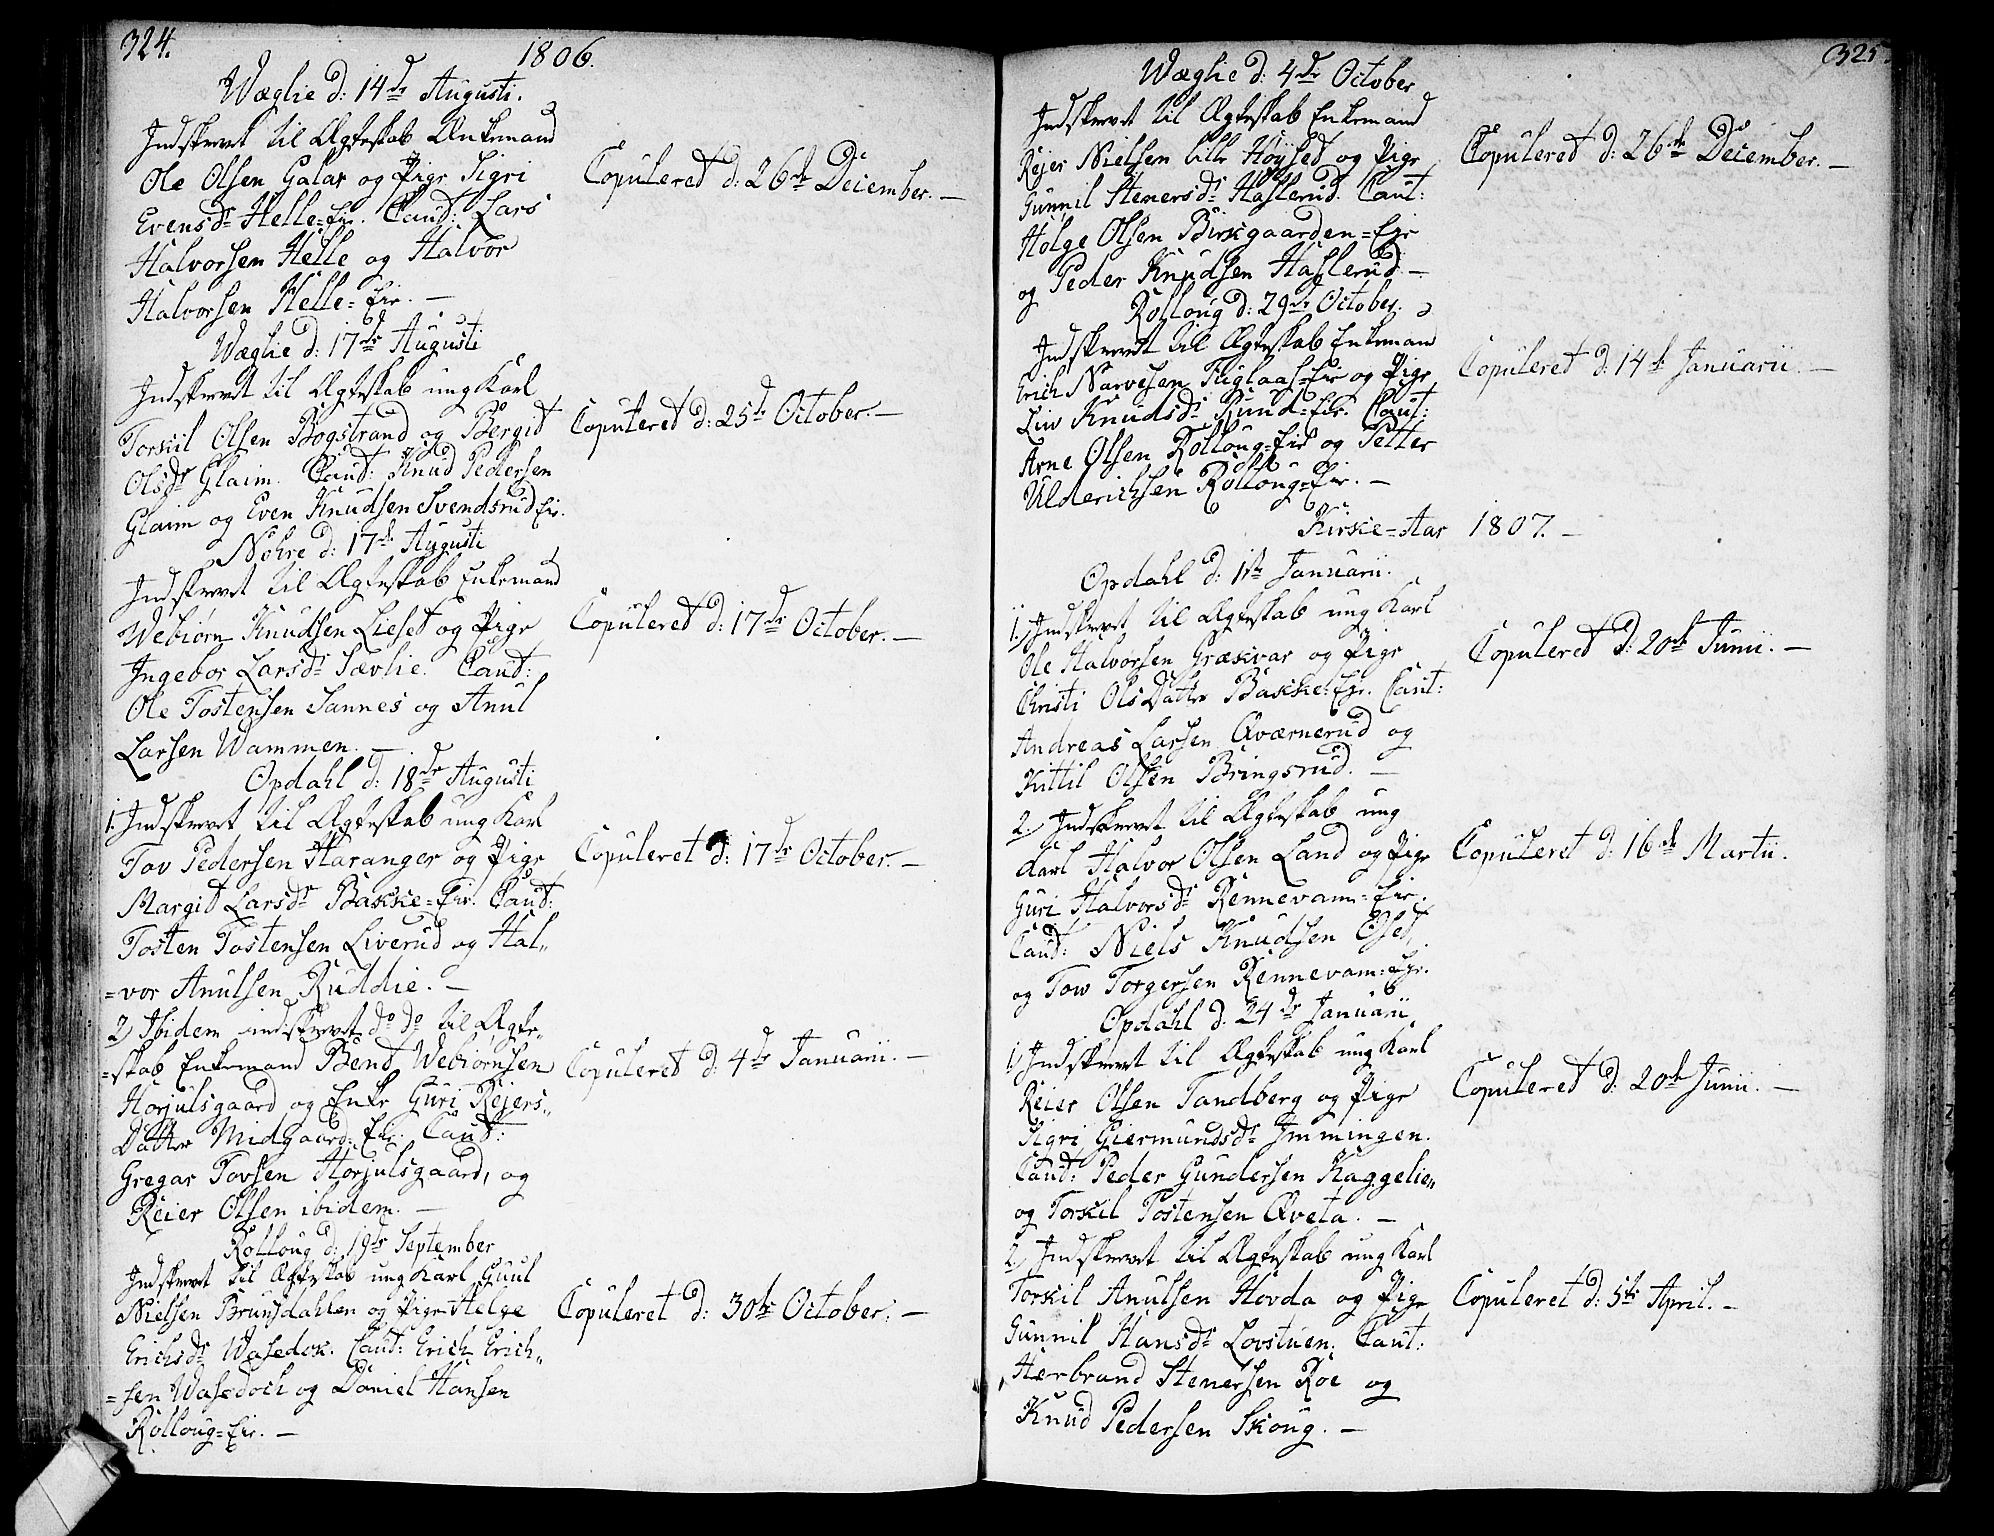 324.
1806.
Wæglie d: 14de Augusti.
Indskrevet til Ægteskab Ænkemand
Ole Olsen Galar og Pige Sigri
Evensdr Helle=Eir. Caut: Lars
Halvorsen Helle og Halvor
Halvorsen Helle=Eir. —
Copuleret d: 26de December. —
Wæglie d: 17de Augusti
Indskrevet til Ægteskab ung Karl
Torskil Olsen Bogstrand og Bergit
Olsdr Glaim. Caut: Knud Pedersen
Glaim og Even Knudsen Svendsrud Eir.
Copuleret d: 25de October. —
Nohre d: 17de Augusti
Indskrevet til Ægteskab Enkemand
Webiørn Knudsen Lieset og Pige
Ingebor Larsdr Sævlie. Caut:
Ole Tostensen Sannes og Anul
Larsen Wammen. —
Copuleret d: 17de October. —
Opdahl d: 18de Augusti
1. Indskrevet til Ægteskab ung Karl
Tov Pedersen Haranger og Pige
Margit Larsdr Bakke=Eir. Caut:
Tosten Tostensen Liverud og Hal„
=vor Anulsen Ruddie. —
Copuleret d: 17de October. —
2) Ibidem indskrevet do do til Ægte„
=skab Enkemand Bend Webiørnsen
Horjulsgaard og Enke Guri Reiers„
Datter Midgaard=Eir. Caut:
Gregar Tovsen Horjulsgaard, og
Reier Olsen ibidem. —
Copuleret d: 4de Januarii. —
Rolloug d: 19de September
Indskrevet til Ægteskab ung Karl Guul
Nielsen Brunsdahlen og Pige Helge
Erichsdr Wasedok. Caut: Erich Erich„
=sen Wasedoch og Daniel Hansen
Rolloug=Eir. —
Copuleret d: 30de October. —
325.
Wæglie d: 4de October
Indskrevet til Ægteskab Enkemand
Rejer Nielsen lille Høyset og Pige
Gunnil Stenersdr Haslerud. Caut:
Holge Olsen Birkgaarden=Eir
og Peder Knudsen Haslerud. —
Copuleret d: 26de December. —
Rolloug d: 29de October.
Indskrevet til Ægteskab Enkemand
Erich Narvesen Fuglaas=Eir og Pige
Liv Knudsdr Ruud=Eir. Caut:
Arne Olsen Rolloug=Eir og Petter
Ulderichsen Rolloug=Eir. —
Copuleret d: 14de Januarii. —
Kirke=Aar 1807. —
Opdahl d: 1ste Januarii.
1.) Indskrevet til Ægteskab ung Karl
Ole Halvorsen Græskar og Pige
Christi Ols Datter Bakke=Eir. Caut:
Andreas Larsen Qværnerud og
Kittil Olsen Bringsrud. —
Copuleret d: 20de Junii. —
2.) Indskrevet til Ægteskab ung
Karl Halvor Olsen Land og Pige
Guri Halvorsdr Rennevam=Eir.
Caut: Niels Knudsen Øset
og Tow Torgersen Rennevam=Eir.
Copuleret d: 16de Martii.
Opdahl d. 24de Januarii
1.) Indskrevet til Ægteskab ung Karl
Reier Olsen Tandberg og Pige
Sigri Giermundsdr Immingen.
Caut: Peder Gundersen Kaggelie„
og Torskil Tostensen Qveta. —
Copuleret d: 20de Junii. —
2) Indskrevet til Ægteskab ung Karl
Torskil Anulsen Hovda og Pige
Gunnil Hansdr Lovstuen. Caut:
Herbrand Stenersen Roe og
Knud Pedersen Skoug. —
Copuleret d: 5te April. —